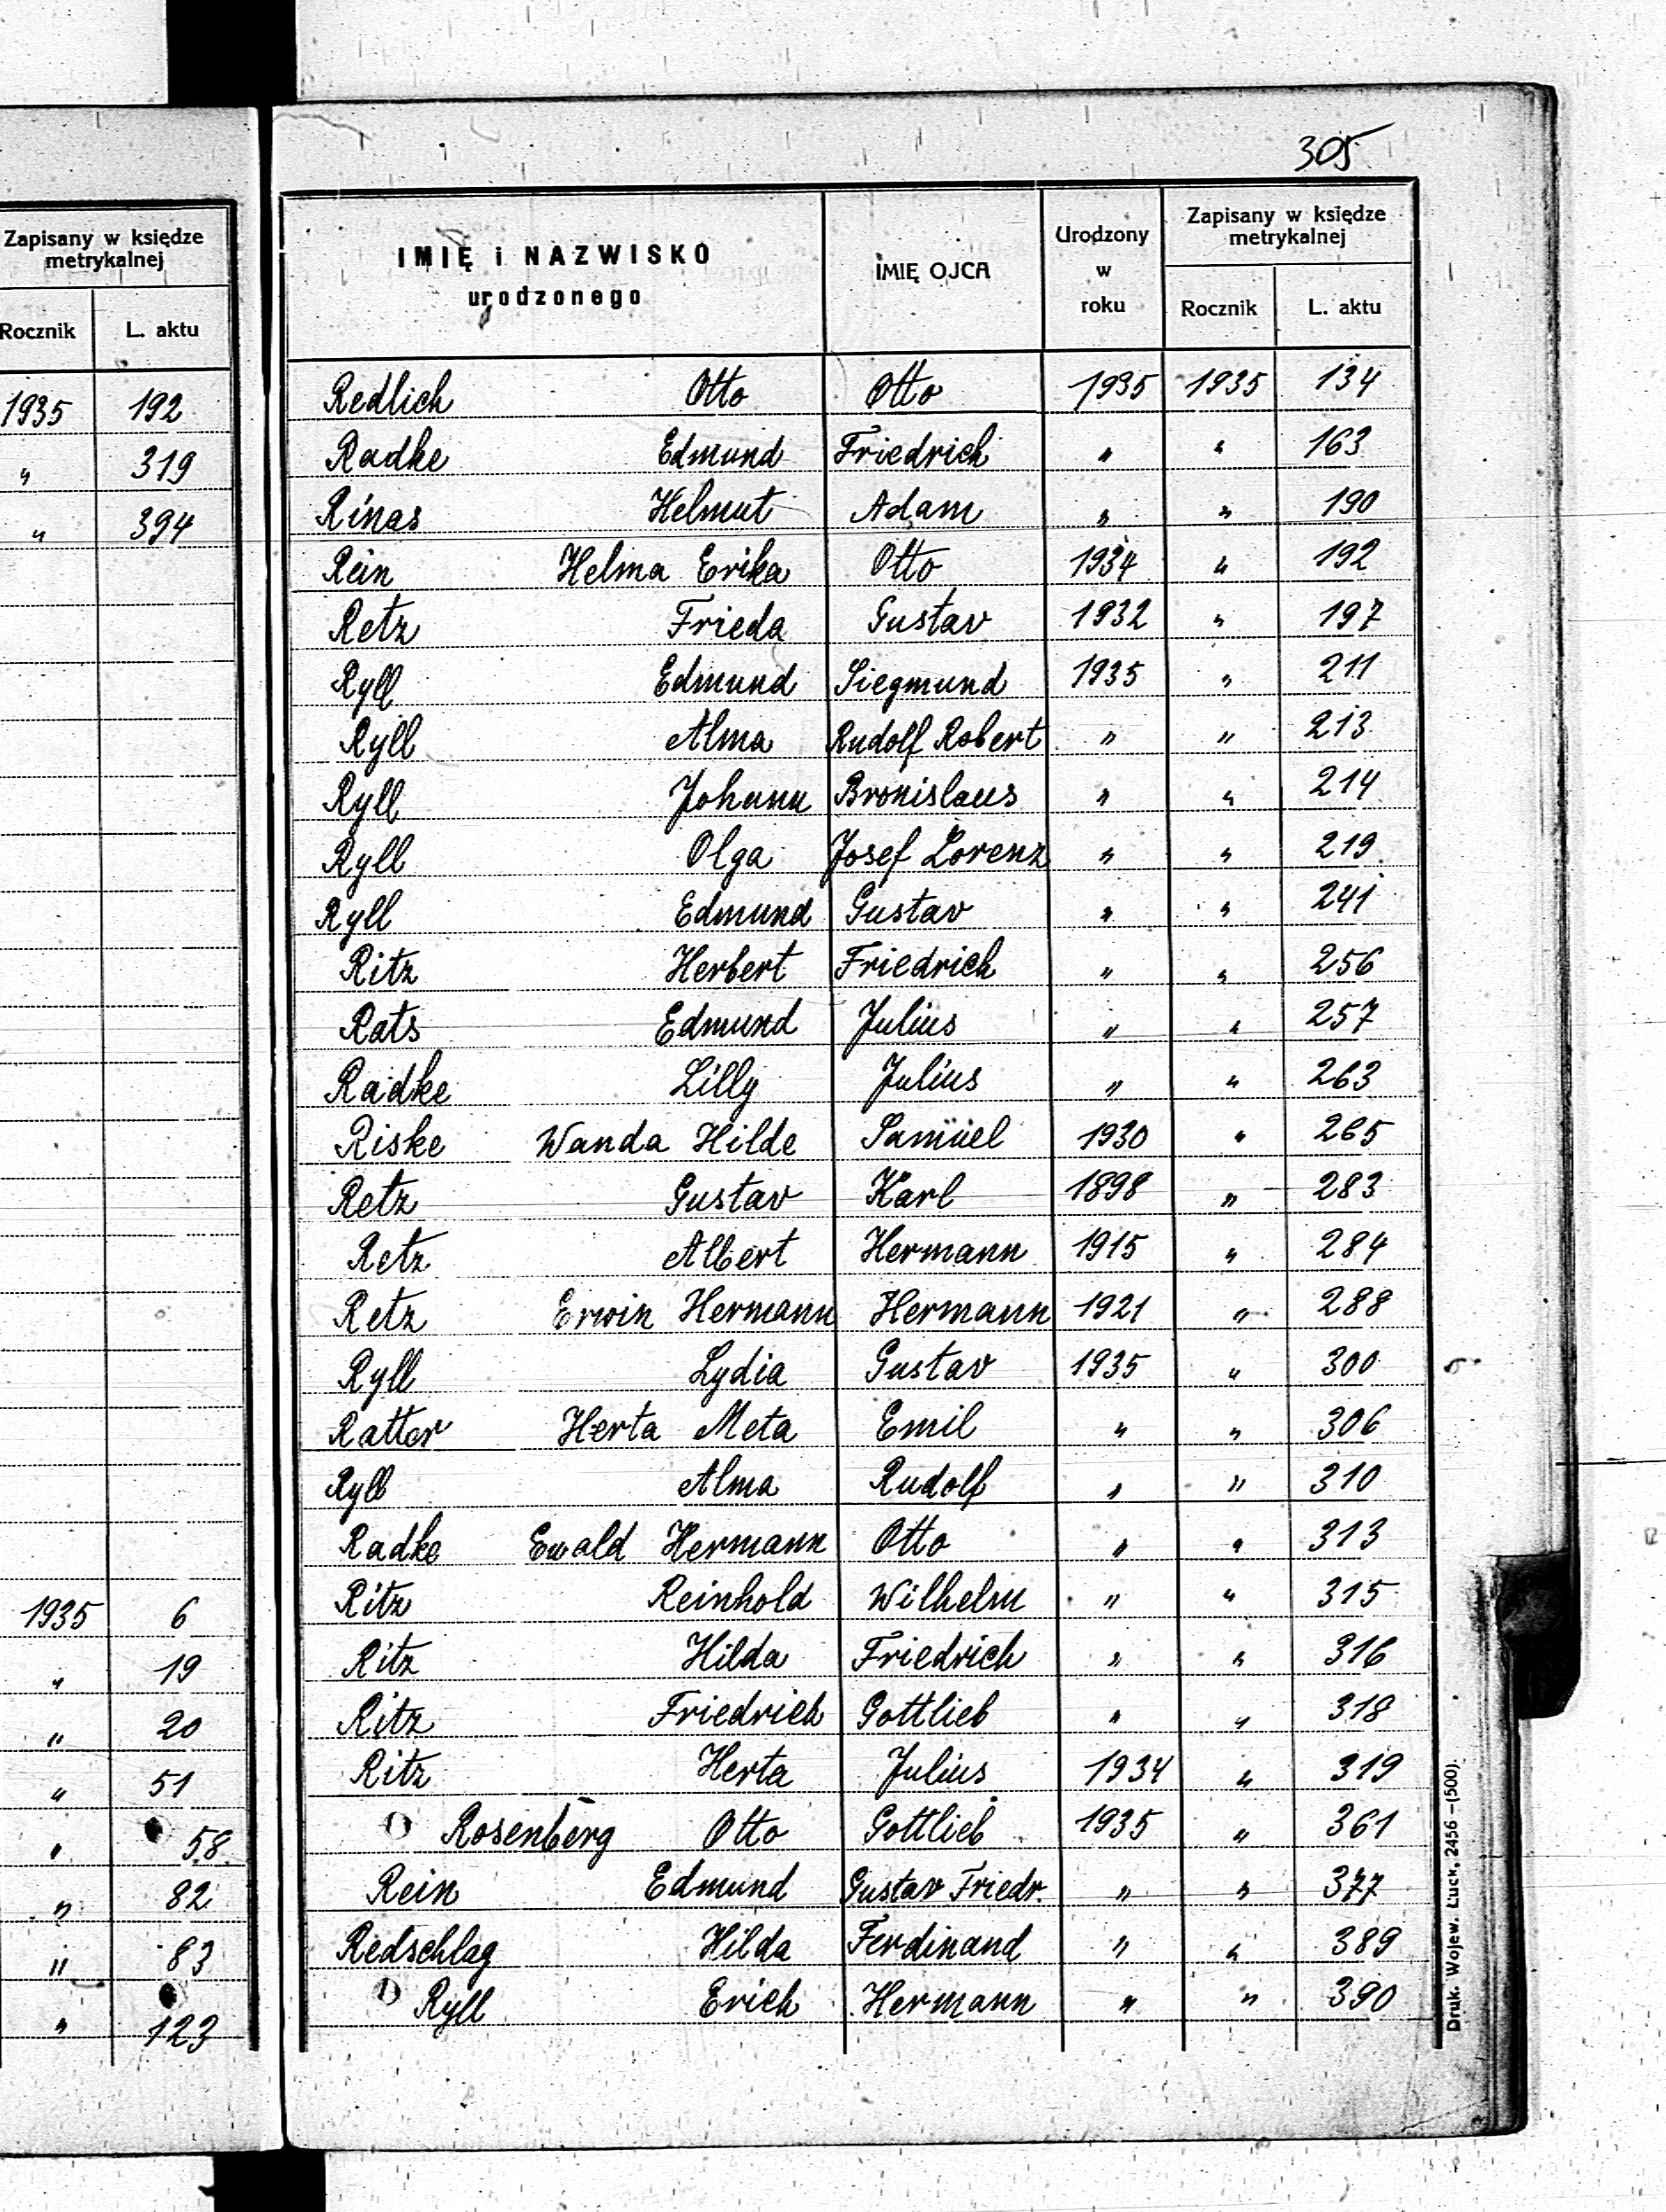 Zapisany w księdze
metrykalnej
Rocznik L. aktu
1935 192
" 319
" 394
1935 6
" 19
" 20
" 51
" 58
" 82
" 83
" 123
305
IMIĘ i NAZWISKO
urodzonego
IMIĘ OJCA
Urodzony
w
roku
Zapisany w księdze
metrykalnej
Rocznik L. aktu
Redlich Otto Otto 1935 1935 134
Radke Edmund Friedrich " " 163
Rinas Helmut Adam " " 190
Rein Helma Erika Otto 1934 " 192
Retz Frieda Gustav 1932 " 197
Ryll Edmund Siegmund 1935 " 211
Ryll Alma Rudolf Robert " " 213
Ryll Johann Bronislaus " " 214
Ryll Olga Josef Lorenz " " 219
Ryll Edmund Gustav " " 241
Ritz Herbert Friedrich " " 256
Rats Edmund Julius " " 257
Radke Lilly Julius " " 263
Riske Wanda Hilde Samuel 1930 " 265
Retz Gustav Karl 1898 " 283
Retz Albert Hermann 1915 " 284
Retz Erwin Hermann Hermann 1921 " 288
Ryll Lydia Gustav 1935 " 300
Ratter Herta Meta Emil " " 306
Ryll Alma Rudolf " " 310
Radke Ewald Hermann Otto " " 313
Ritz Reinhold Wilhelm " " 315
Ritz Hilda Friedrich " " 316
Ritz Friedrich Gottlieb " " 318
Ritz Herta Julius 1934 " 319
Rosenberg Otto Gottlieb 1935 " 361
Rein Edmund Gustav Friedr. " " 377
Redschlag Hilda Ferdinand " " 389
Ryll Erich Hermann " " 390
Druk. Wojew. Łuck, 2456–(500).